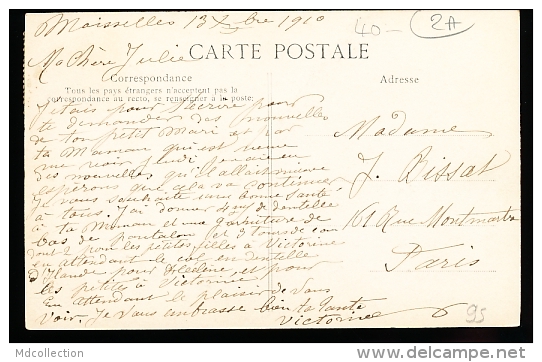 Moisselles 13 Xbre 1910
40-
2A
Ma chère Julie
CARTE POSTALE
Correspondance
Adresse
Tous les pays étrangers n'acceptent pas la
correspondance au recto, se renseigner à la poste.
J'étais pour t'écrire pour
te demander des nouvelles
de ton petit Mari et par
ta Maman qui est venue
me voir jeudi j'en ai eu
des nouvelles qu'il allait mieux
espérons que cela va continuer
Je vous souhaite une bonne santé
à tous. J'ai donné de dentelle
à ta Maman et une garniture de
bas de pantalon et 3 tours de cou
dont 2 pour les petites filles à Victorine
en attendant le col en dentelle
d'Irlande pour Hélène et pour
les petites à Victorine
En attendant le plaisir de vous
voir. Je vous embrasse bien ta tante
Victorine
Madame
J. Bissat
161 Rue Montmartre
Paris
95
Mdcollection
www.delcampe.net